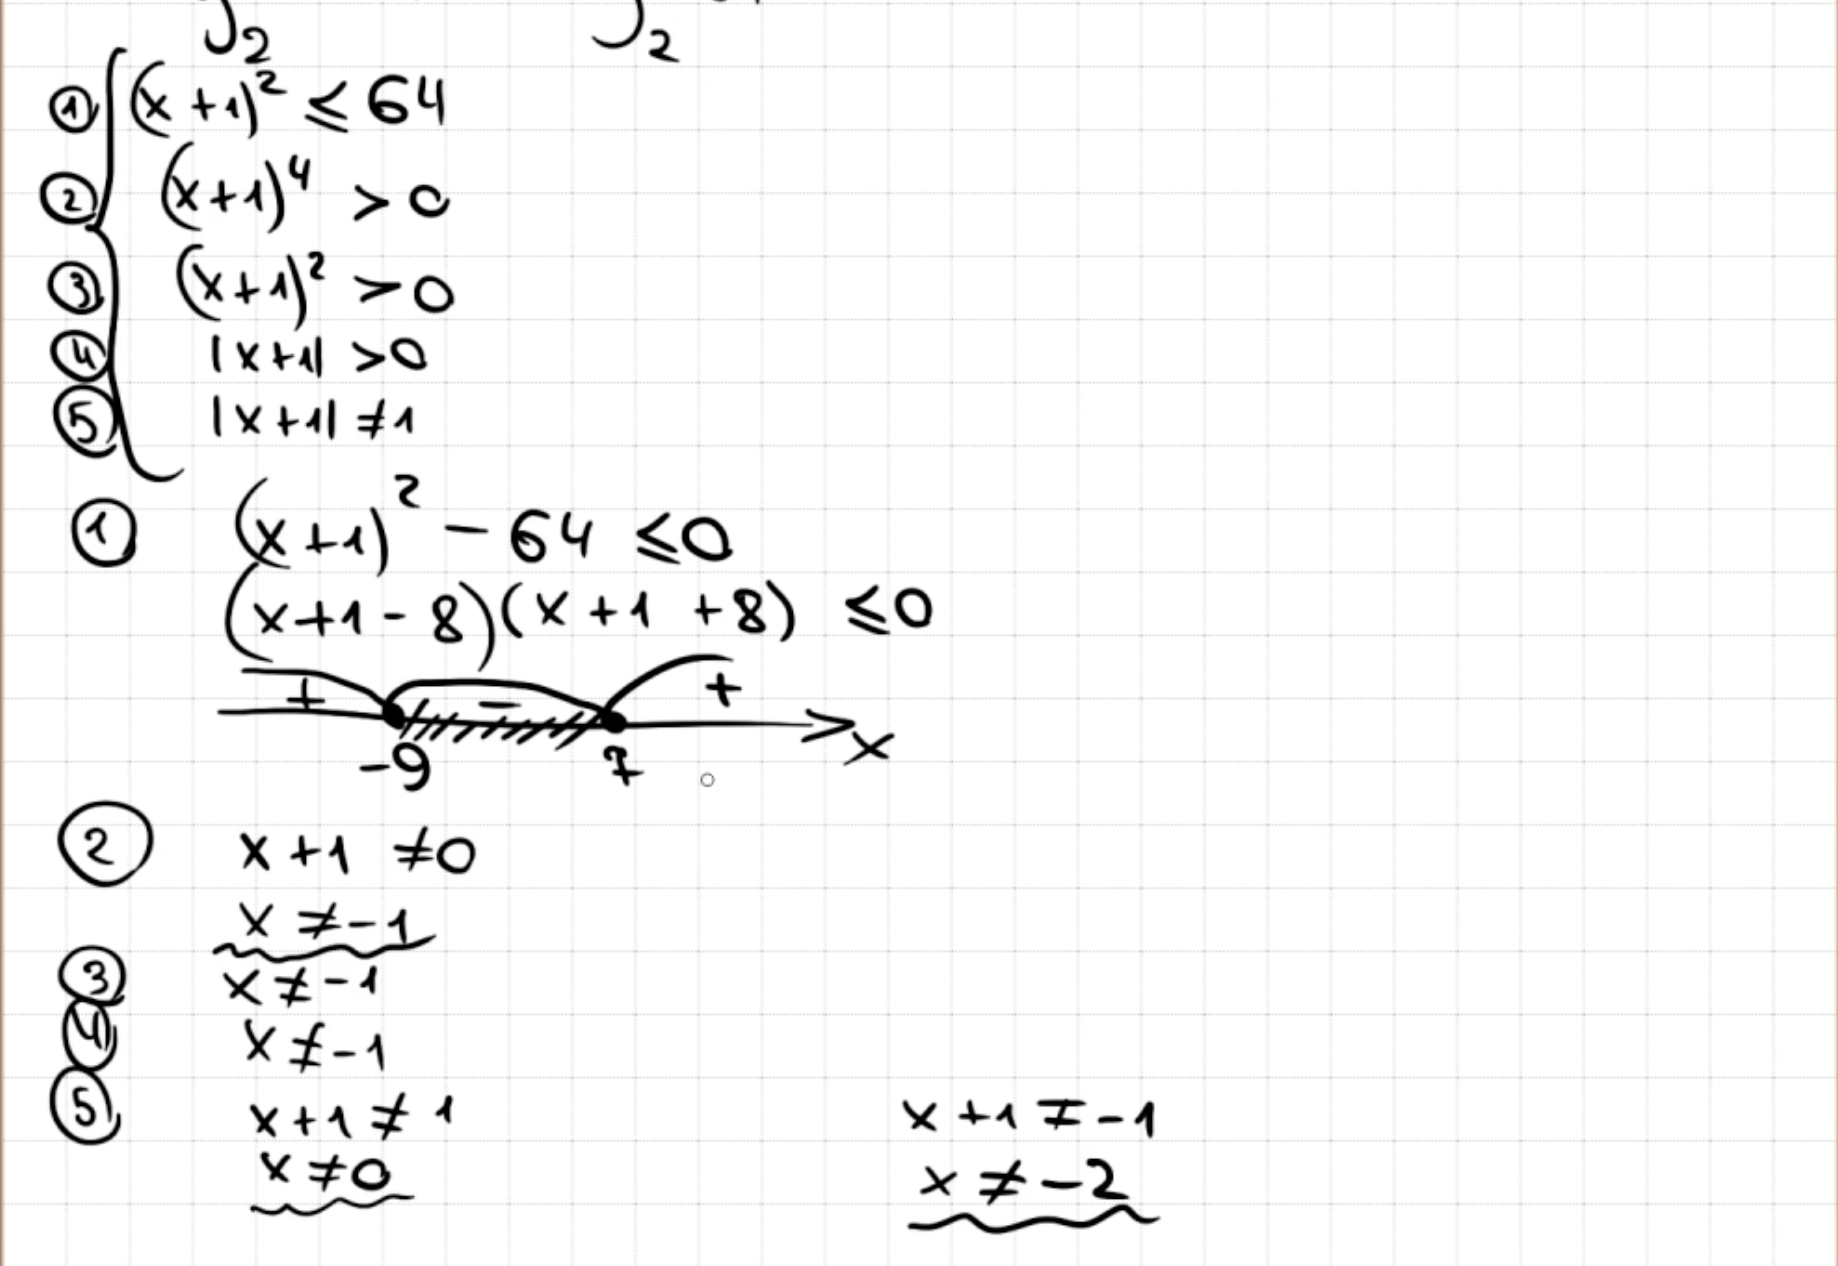 ① (x+1)² ≤ 64
② (x+1)⁴ > 0
③ (x+1)² > 0
④ |x+1| > 0
⑤ |x+1| ≠ 1
① (x+1)² - 64 ≤ 0
(x+1-8)(x+1+8) ≤ 0
+ - +
-9 7 x
② x+1 ≠ 0
x ≠ -1
③ x ≠ -1
④ x ≠ -1
⑤ x+1 ≠ 1 x+1 ≠ -1
x ≠ 0 x ≠ -2